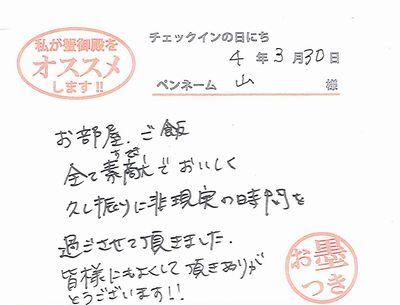 私が蟹御殿を
オススメ
します!!
チェックインの日にち
4年3月30日
ペンネーム 山 様
お部屋.ご飯
全て素敵でおいしく
久し振りに非現実の時間を
過ごさせて頂きました.
皆様にも良くして頂きありが
とうございます!!
お墨
つき